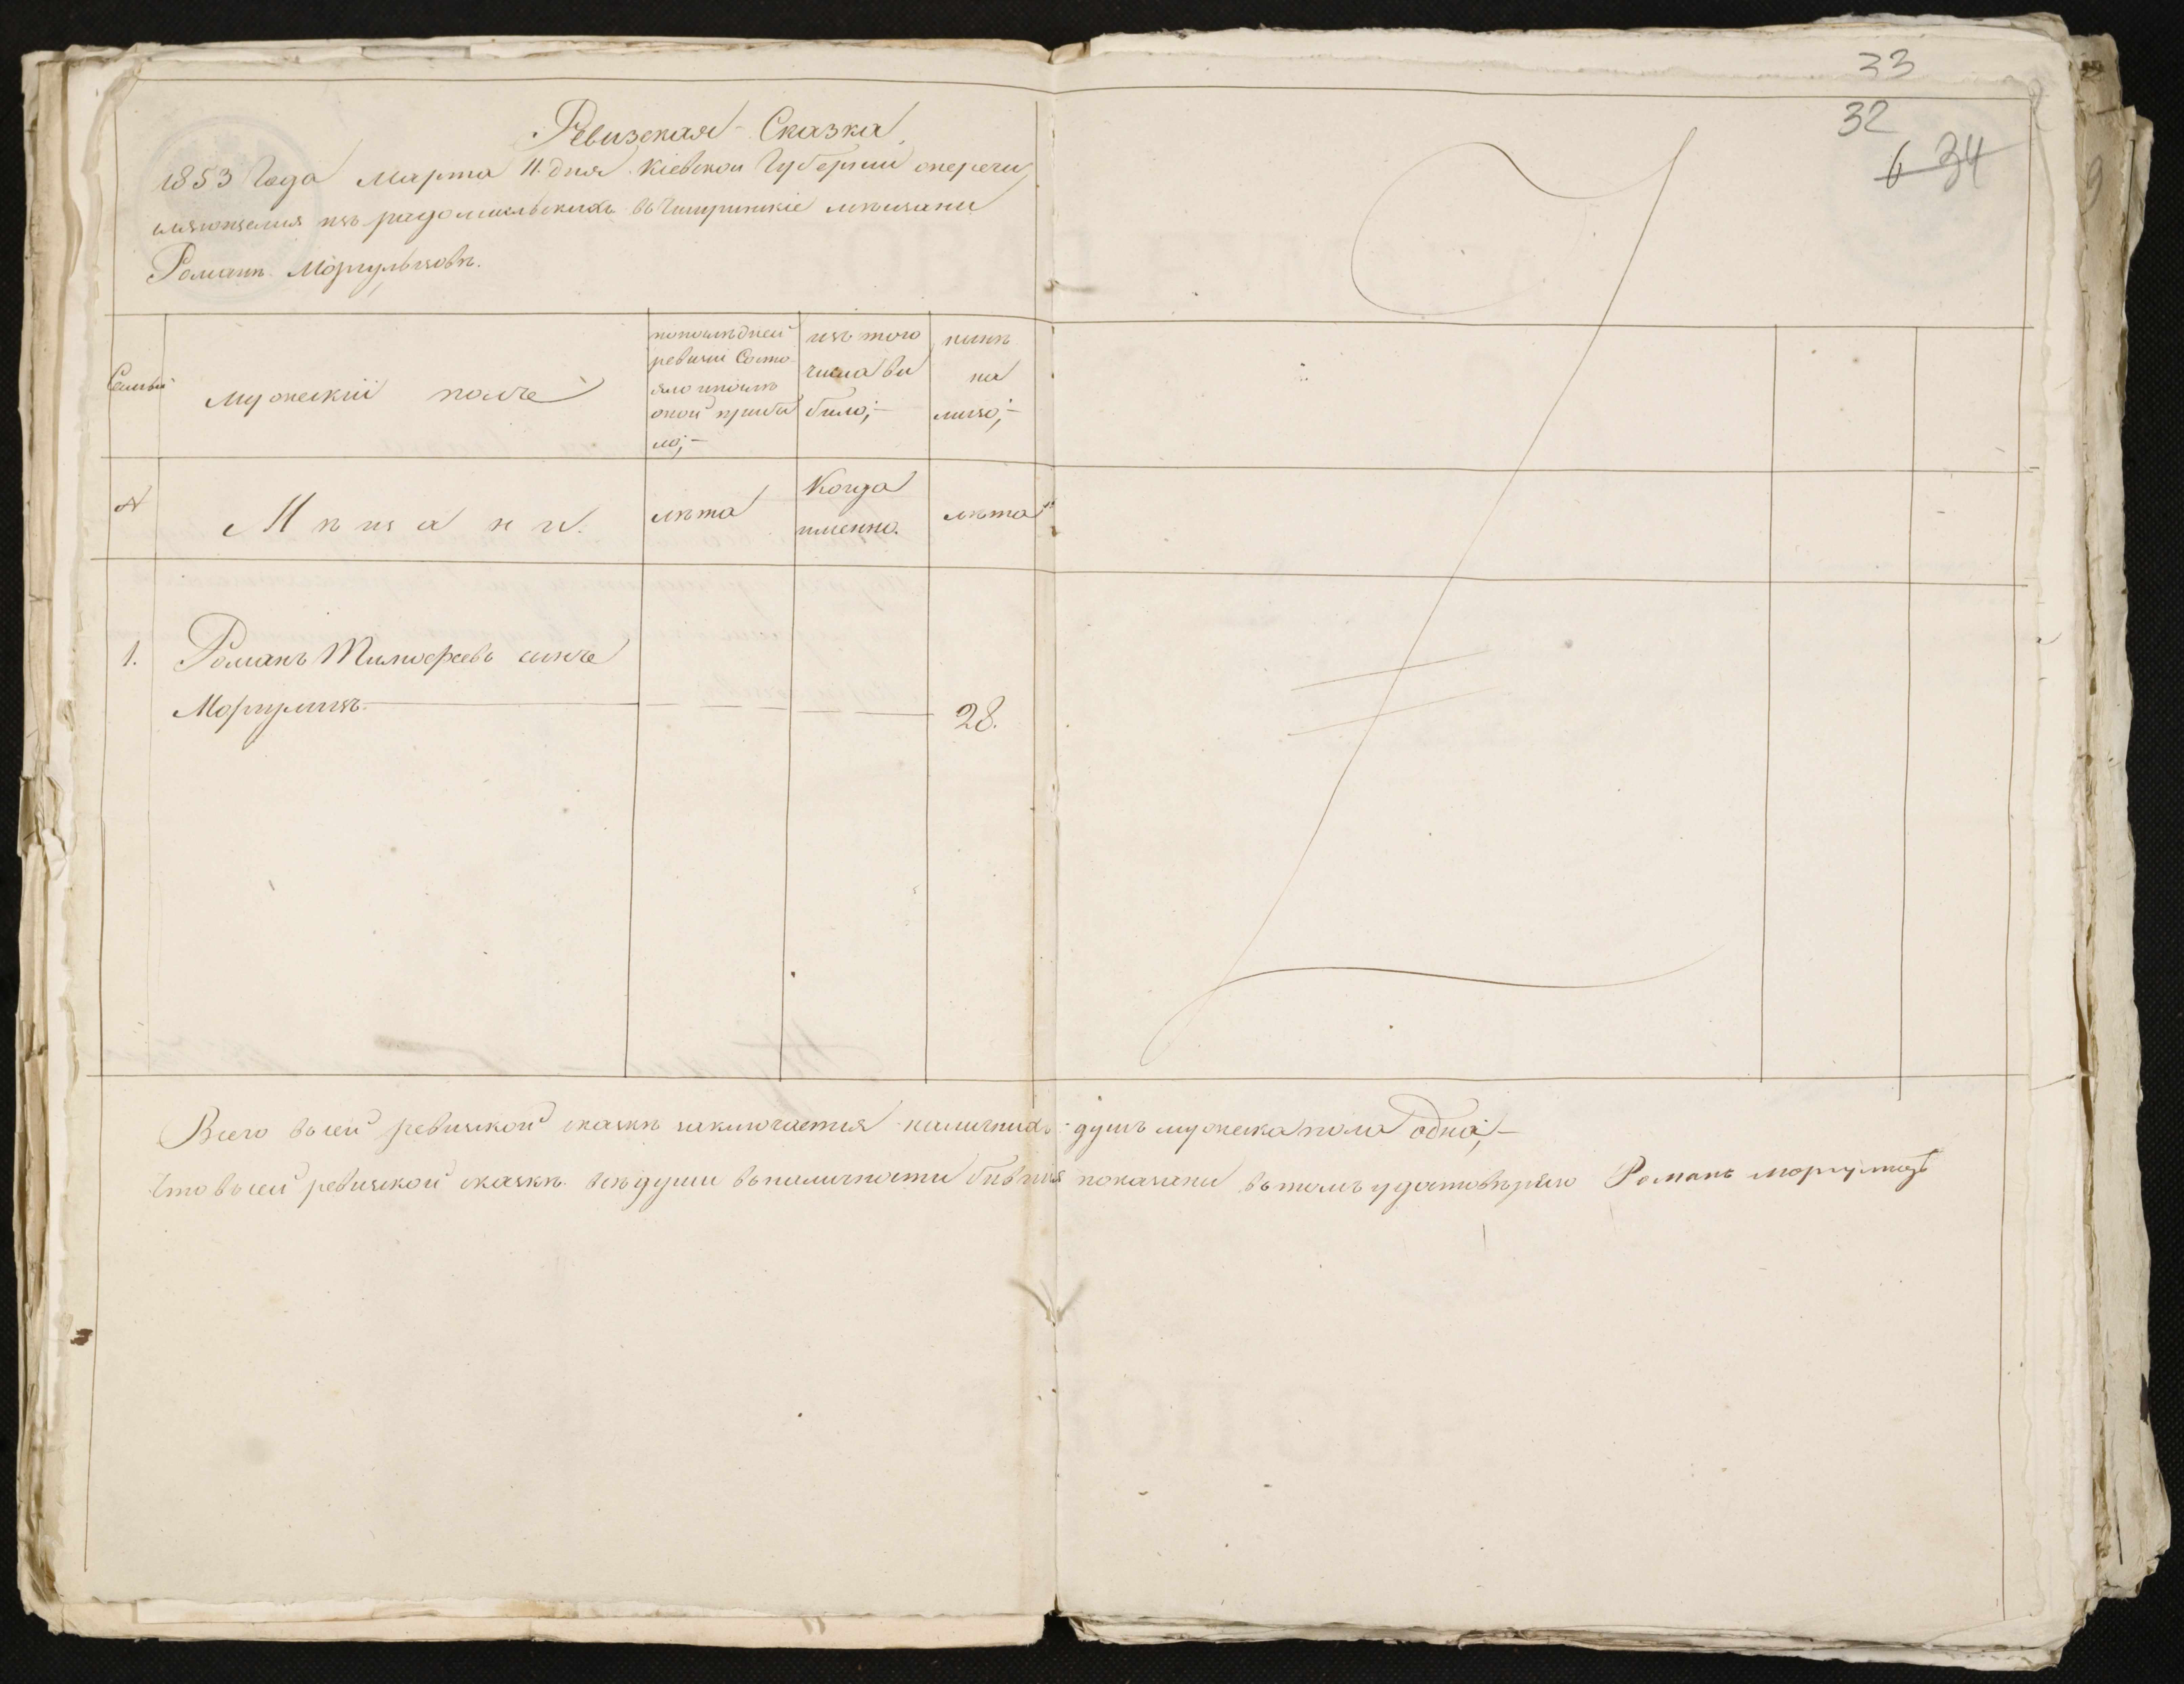 33
32
6 34
Ревизская Сказка
1853 Года Марта 11. дня Кіевской Губерніи о перечи
сляющемся изъ радомисльскихъ въ Чигиринскіе мѣщани
Романѣ Моргульцовѣ.
Семьи
Мужескій полъ
по последней
ревизіи Состо-
яло и после
оной прибы
ло;-
изъ того
числа вы
было;-
нынѣ
на
лицо;-
№
Мѣщани.
лѣта
Когда
именно.
лѣта
1. Романъ Тимофеевъ синъ
Моргулецъ 28.
Всего въ сей ревизской сказкѣ заключается наличнихъ душъ мужеска пола одна;-
Что въ сей ревизской сказкѣ всѣ души въ наличности бывшія показани въ томъ удостовѣряю Романъ Моргулецъ